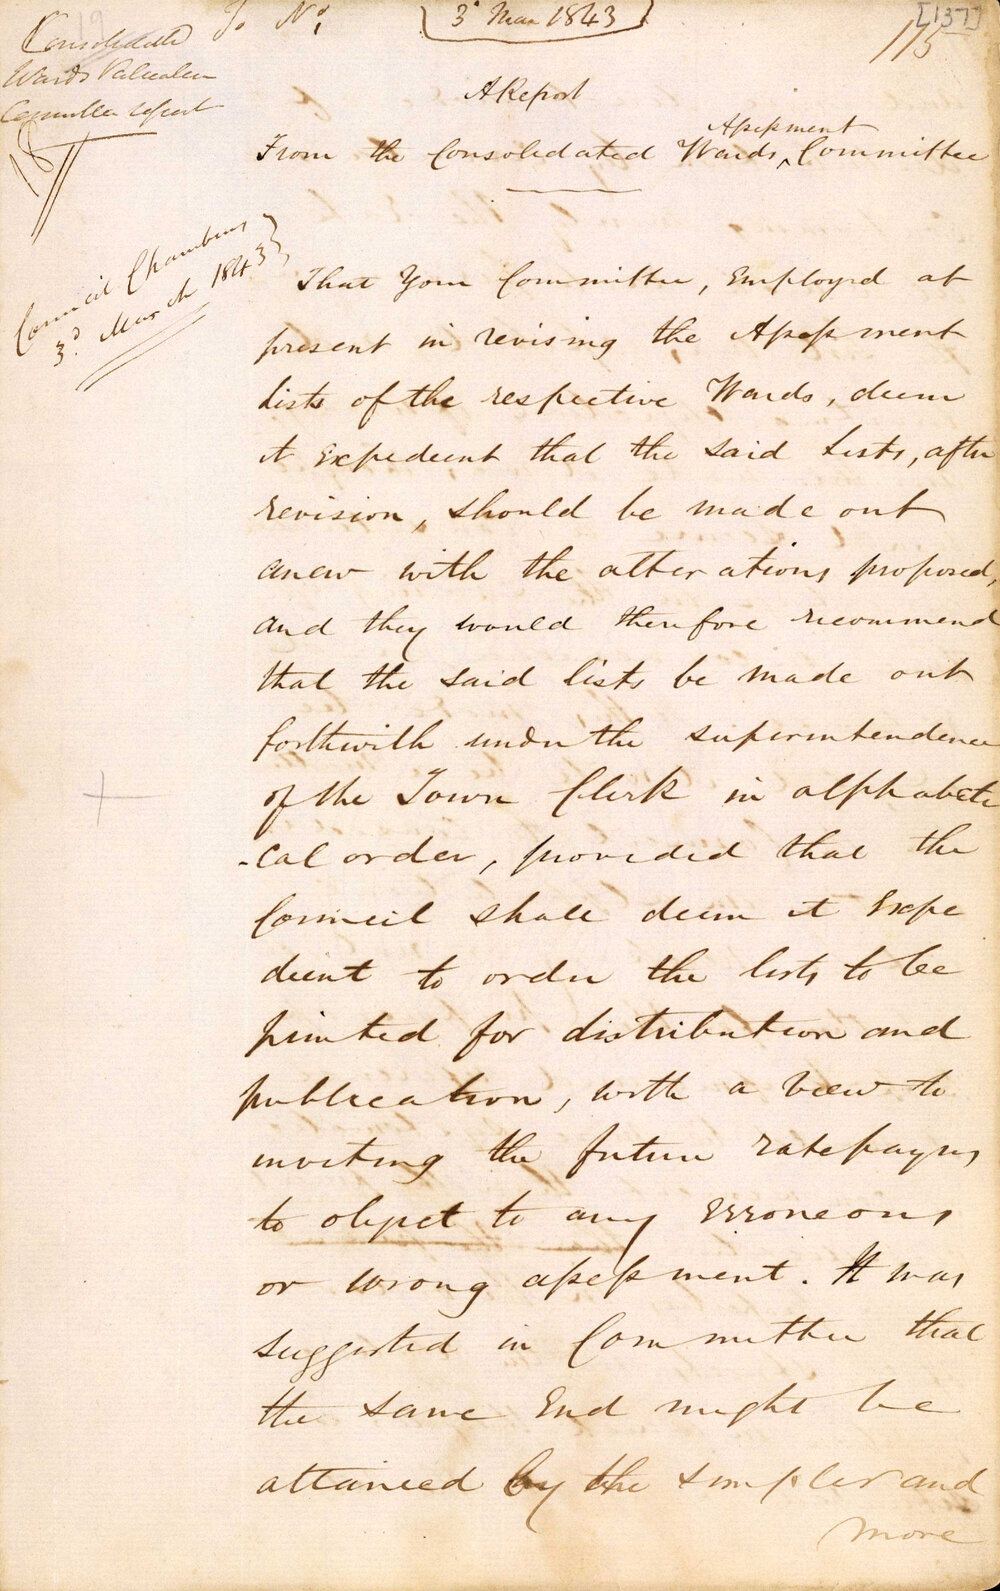 To No 1
3d Mar 1843
[137]
115
Consolidated
Wards Valuation
Committee report
A Report
Assessment
From the Consolidated Wards ^ Committee
Council Chambers
3d. March 1843
That Your Committee, Employed at
present in revising the Assessment
lists of the respective Wards, deem
it Expedient that the said Lists, after
revision, should be made out
anew with the alterations proposed,
and they would therefore recommend
that the said lists be made out
forthwith under the superintendence
of the Town Clerk in alphabeti
-cal order, provided that the
Council shall deem it Expe
dient to order the lists to be
printed for distribution and
publication, with a view to
inviting the future ratepayers
to object to any Erroneous
or wrong assessment. It was
suggested in Committee that
the same End might be
attained by the simpler and
more